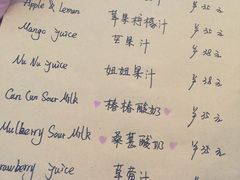 Apple & Lemon 苹果柑橘汁 ¥35元
Mango Juice 芒果汁 ¥38元
Nu Nu Juice 姐姐果汁 ¥38元
Can Can Sour Milk 椿椿酸奶 ¥35元
Mulberry Sour Milk 桑葚酸奶 ¥38元
Strawberry Juice 草莓汁 ¥35元